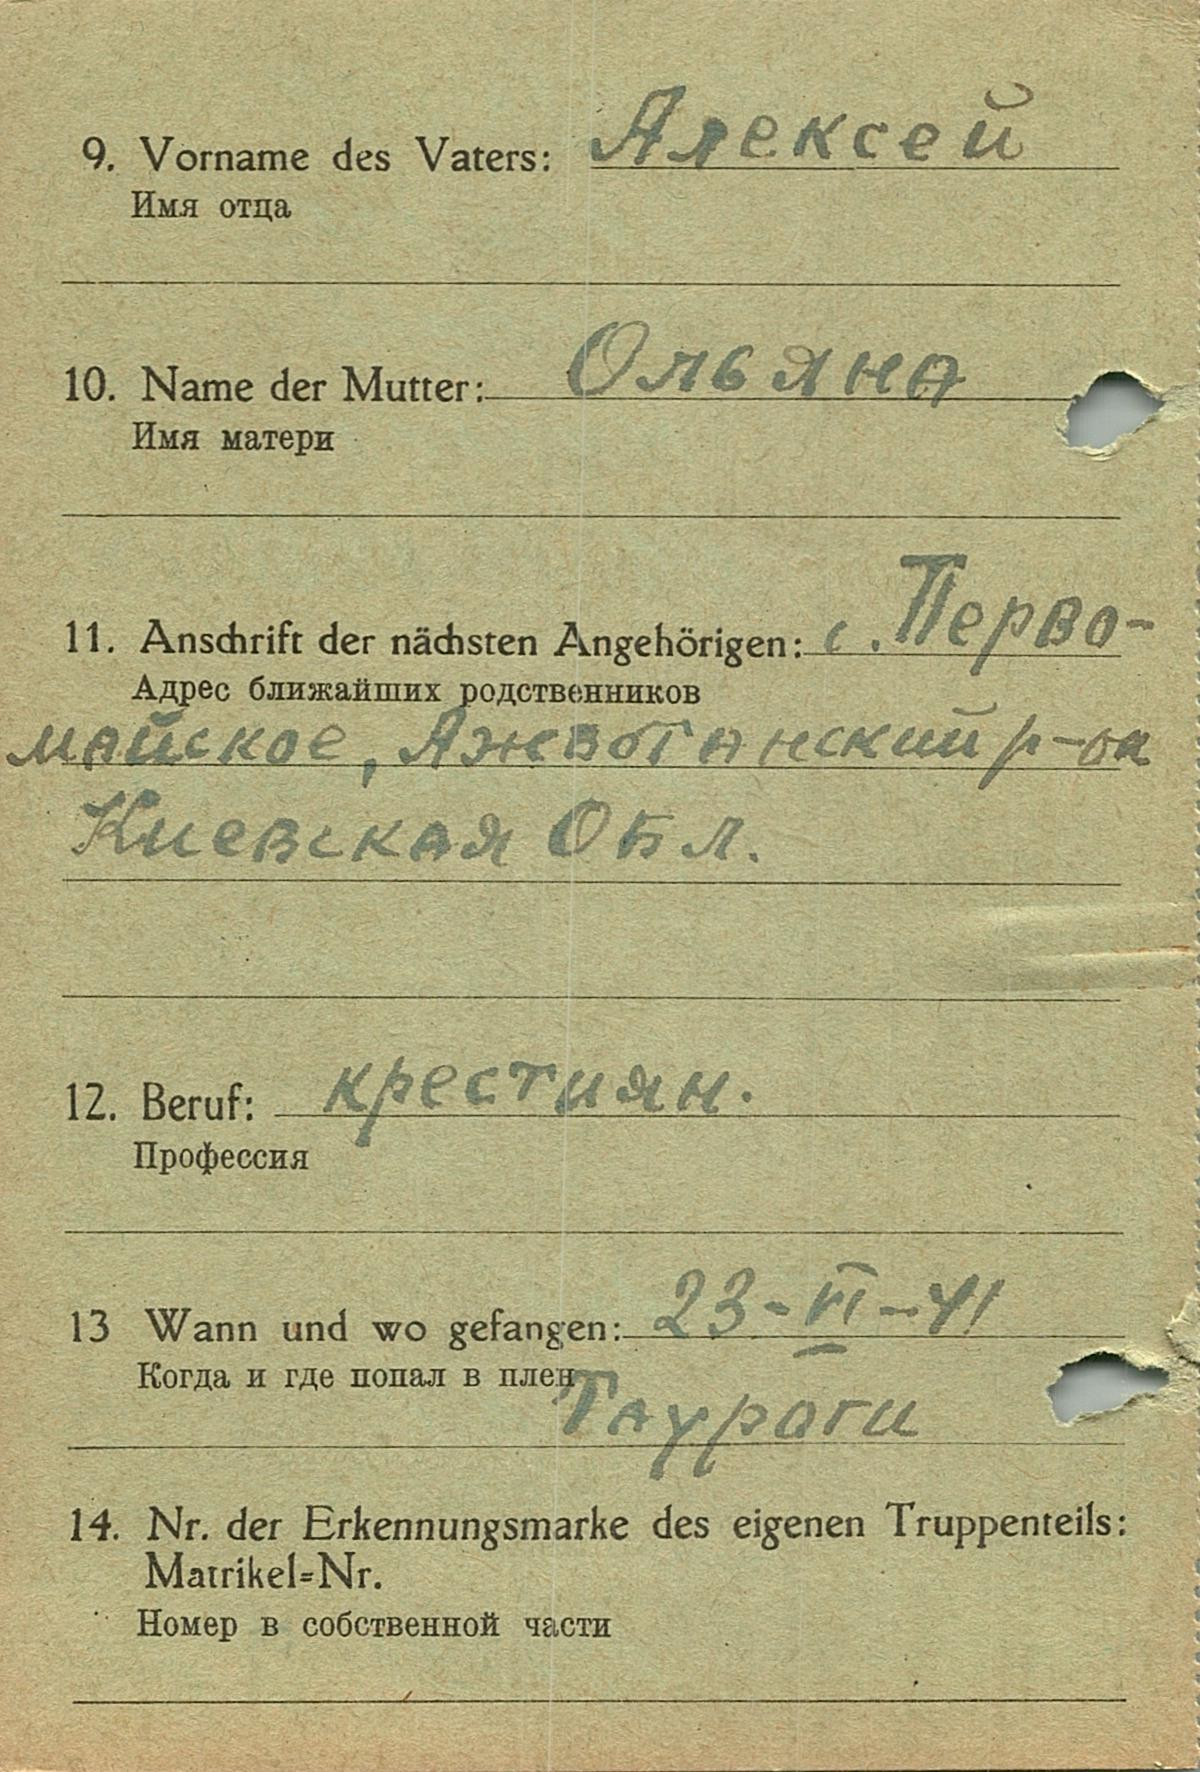 9. Vorname des Vaters: Алексей
Имя отца
10. Name der Mutter: Ольяна
Имя матери
11. Anschrift der nächsten Angehörigen: с. Перво-
Адрес ближайших родственников
майское, р-он
Киевская Обл.
12. Beruf: крестиян.
Профессия
13 Wann und wo gefangen: 23-VI-41
Когда и где попал в плен
Таураги
14. Nr. der Erkennungsmarke des eigenen Truppenteils:
Matrikel=Nr.
Номер в собственной части